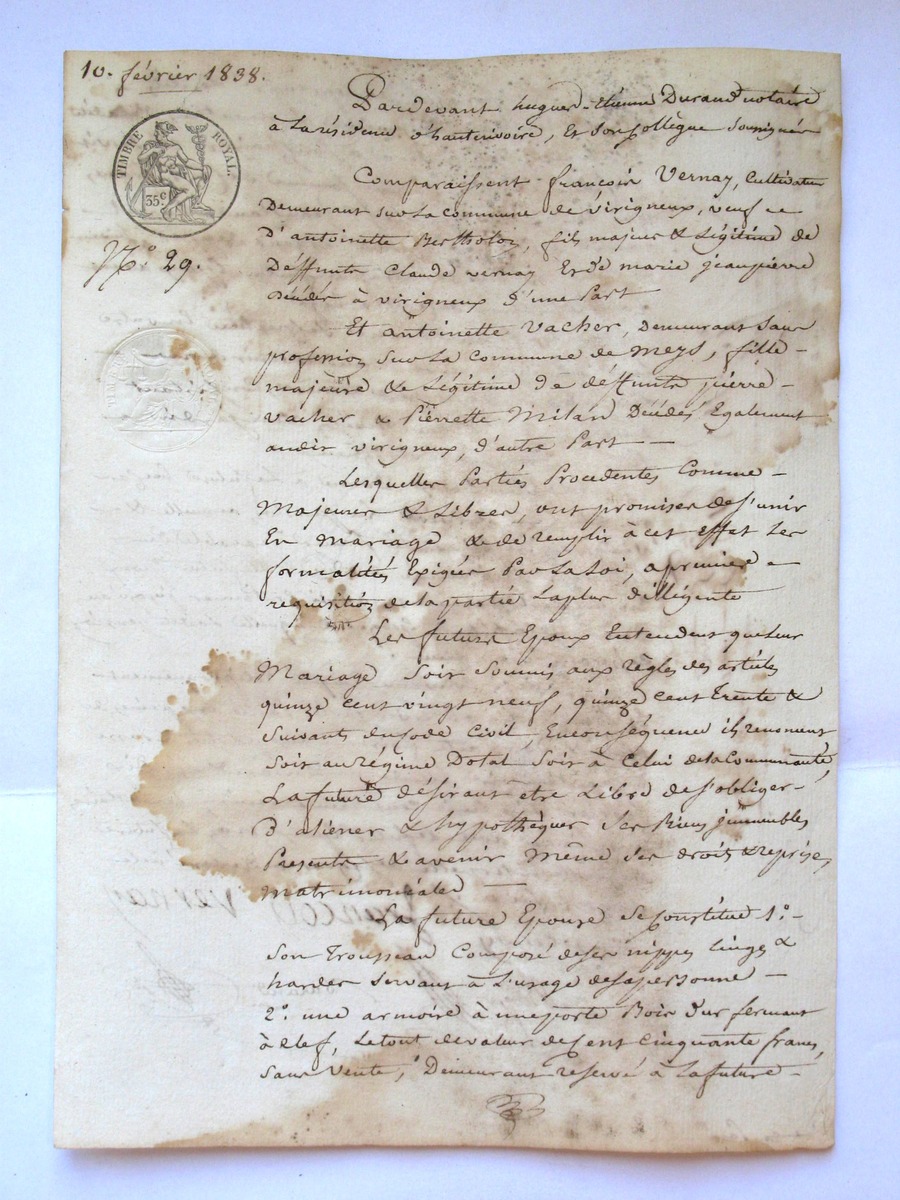 10. février 1838.
Pardevant hugues-Etienne Durand notaire
à la résidence d'hauterivoire, Et son Collègue soussignés
TIMBRE ROYAL.
35c
Comparaissent françois Vernay, Cultivateur
Demeurant sur la commune de Virigneux, veuf
D'antoinette Bertholon, fils majeur & Légitime de
N.° 29.
Déffunts Claude vernay Et de marie jeanpierre
Décédés à virigneux d'une Part
Et antoinette Vacher, Demeurant sans
profession sur la Commune de Meys, fille
majeure & Légitime de déffunts pierre
vacher & Pierrette Milan Décédés Egalement
audit virigneux, d'autre Part —
Lesquelles Parties Procedentes Comme
Majeures & Libres, ont promises de s'unir
En mariage & de remplir à cet effet les
formalités Exigées Par la Loi, a premiere
requisition de la partie la plus dilligente
Les futurs Epoux Entendent que leur
Mariage soit soumis aux règles des articles
quinze cent vingt neuf, quinze cent trente &
suivants du Code Civil, En conséquence ils renoncent
soit au régime Dotal soit à Celui de la Communauté,
La future désirant etre Libre de s'obliger
D'aliéner & hypothéquer ses Biens immeubles
Presents & avenir même ses droits & reprises
matrimoniales —
La future Epouse se Constitue 1.°
son Trousseau Composé de ses nippes linges &
hardes servant à L'usage de sa personne
2.° une armoire à une porte Bois dur fermant
à clef, Le tout de valeur de Cent Cinquante francs,
sans vente, Demeurant reservé à la future